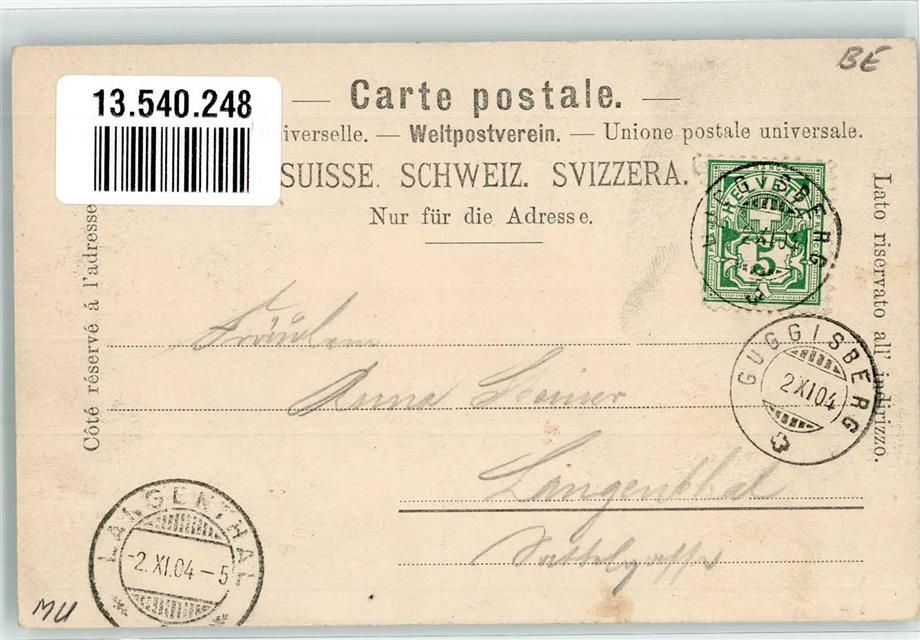 BE
13.540.248
— Carte postale. —
iverselle. — Weltpostverein. — Unione postale universale.
SUISSE. SCHWEIZ. SVIZZERA.
Nur für die Adresse.
Côté réservé á l'adresse
Lato riservato all' indirizzo.
HELVETIA
5
2 XI 04
GUGGISBERG
2 XI 04
Fräulein
Anna
Langenthal
Sattelgasse
LANGENTHAL
-2. XI. 04 - 5
MU